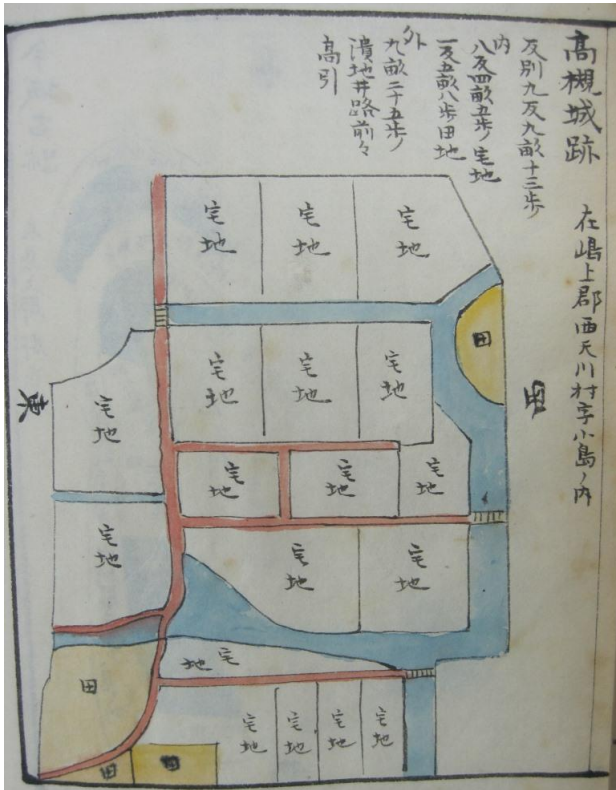 高槻城跡
在嶋上郡西天川村字小島ノ内
反別九反九畝十三歩
内
八反四畝五歩宅地
一反五畝八歩田地
外
九畝二十五歩
潰地井路前々
高引
宅地
宅地
宅地
田
宅地
宅地
宅地
西
東
宅地
宅地
宅地
宅地
宅地
宅地
宅地
宅地
田
宅地
宅地
宅地
宅地
田
田